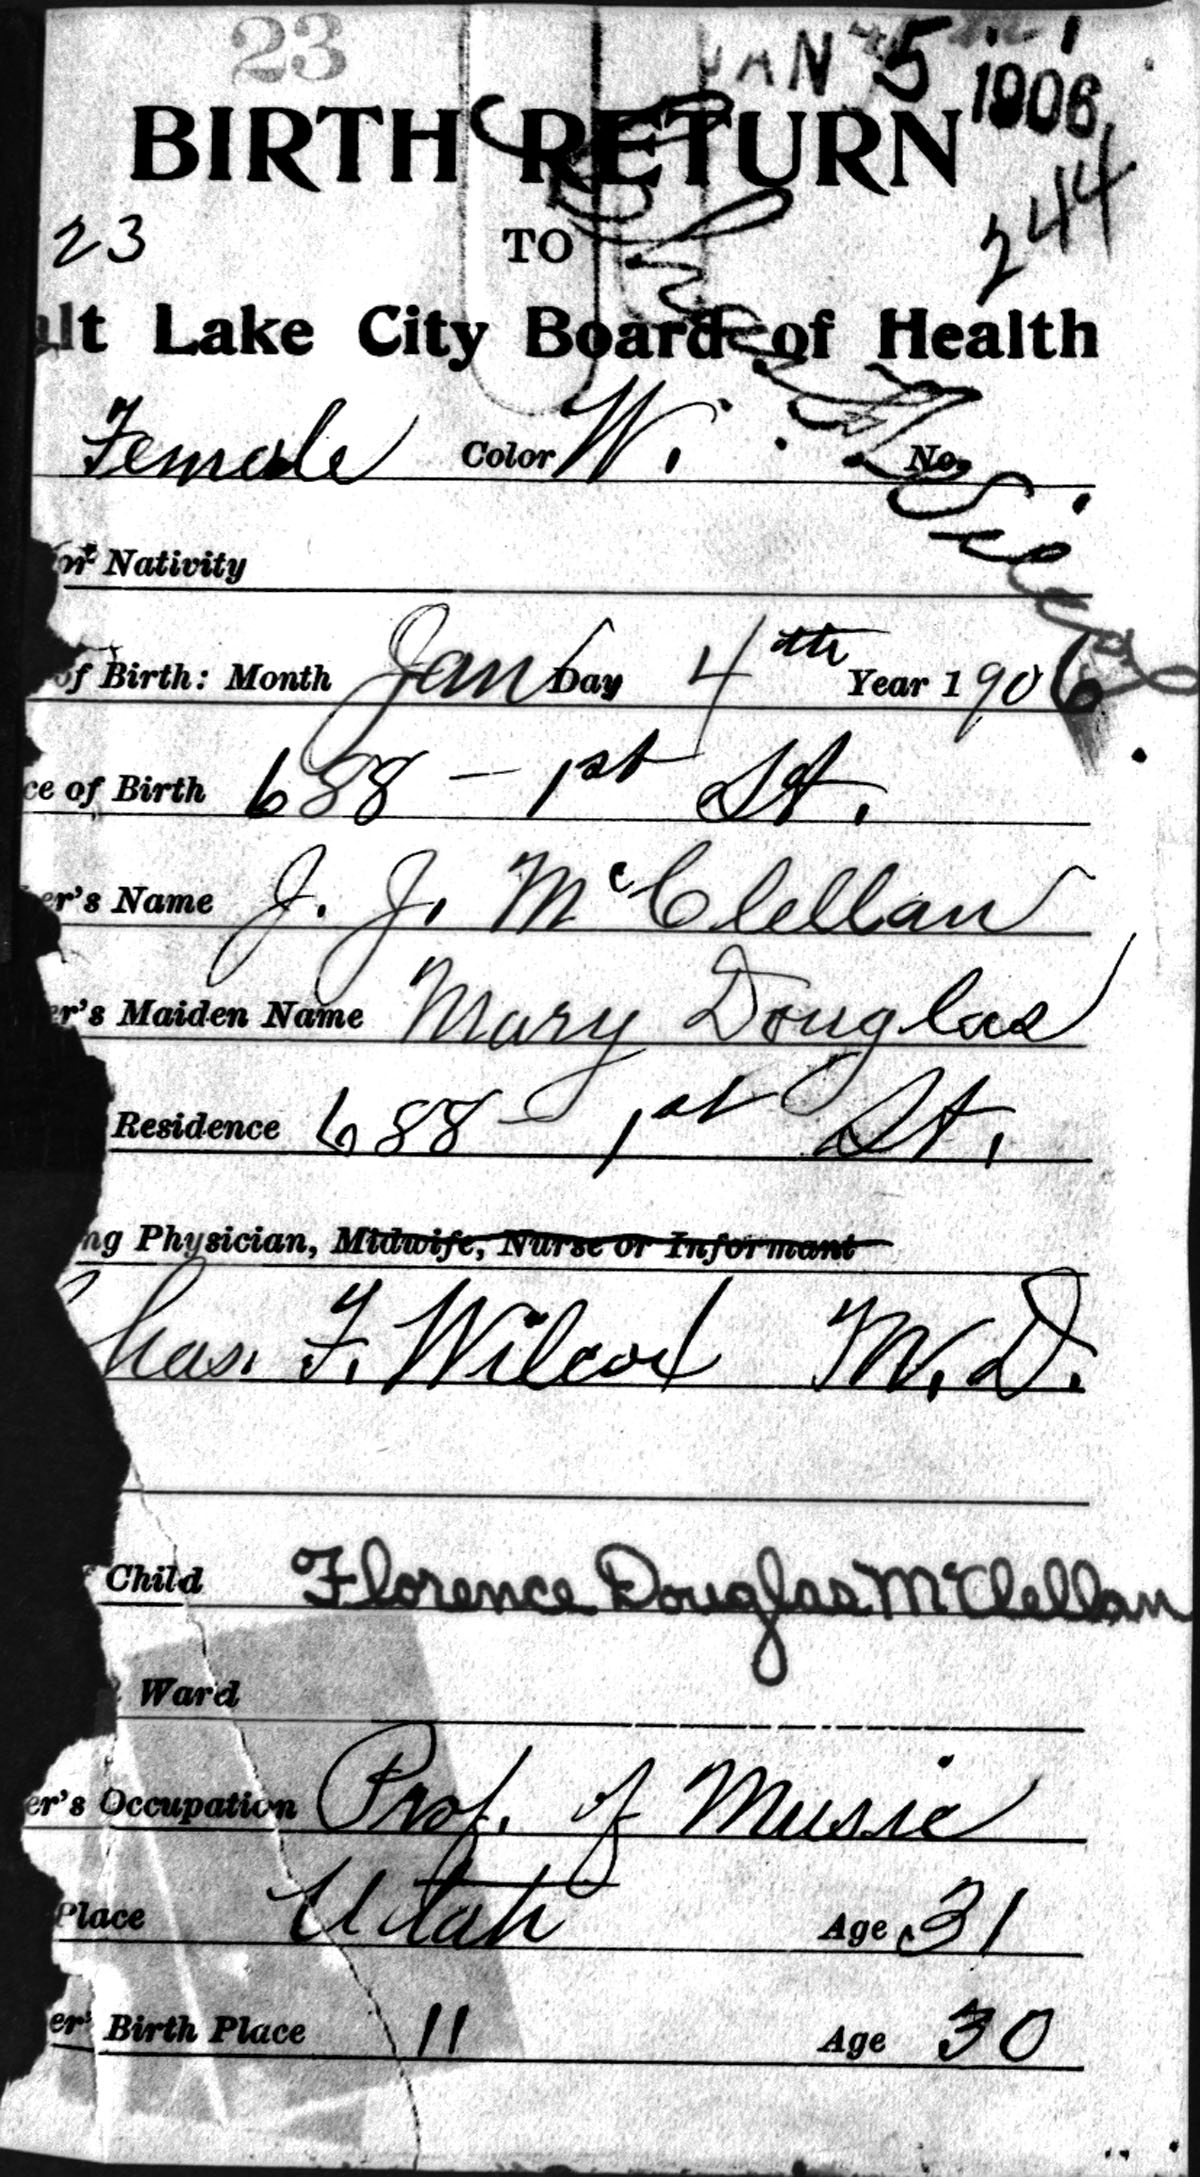 23
JAN 5 1906
BIRTH RETURN
244
23
TO
ult Lake City Board of Health
Female Color W. No.
or Nativity
of Birth: Month Jan Day 4th Year 1906
ce of Birth 688 - 1st St.
er's Name J. J. McClellan
er's Maiden Name Mary Douglas
Residence 688 - 1st St.
ng Physician, Midwife, Nurse or Informant
Chas. F. Wilcox M. D.
Child Florence Douglas McClellan
Ward
er's Occupation Prof. of Music
Place Utah Age 31
er' Birth Place 11 Age 30